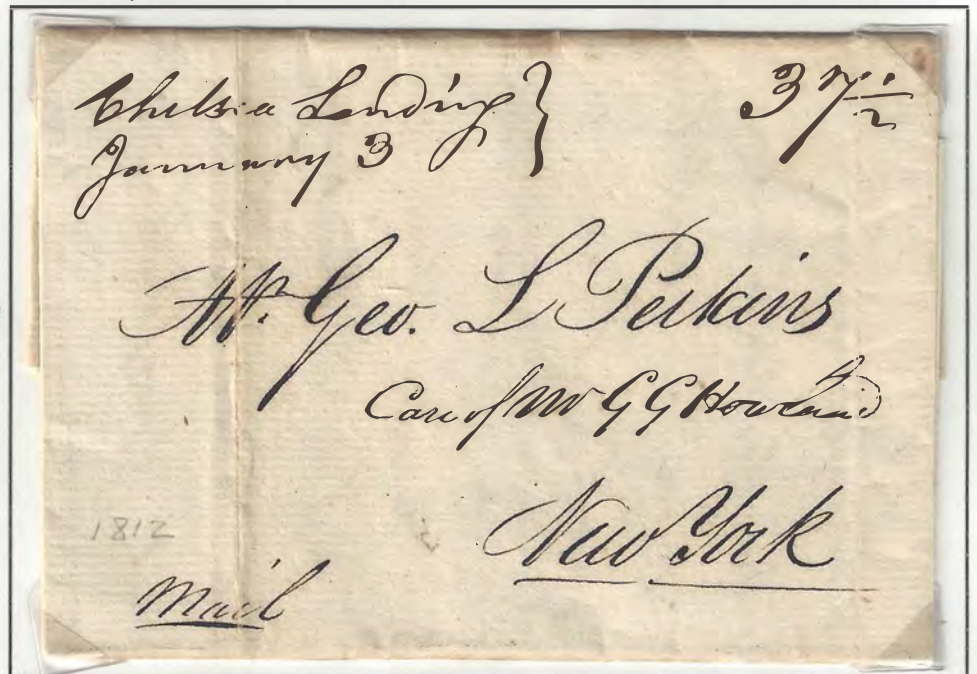 Chelsea Landing
January 3
37 1/2
Mr. Geo. L Perkins
Care of Mr G G Howland
New York
1812
Mail